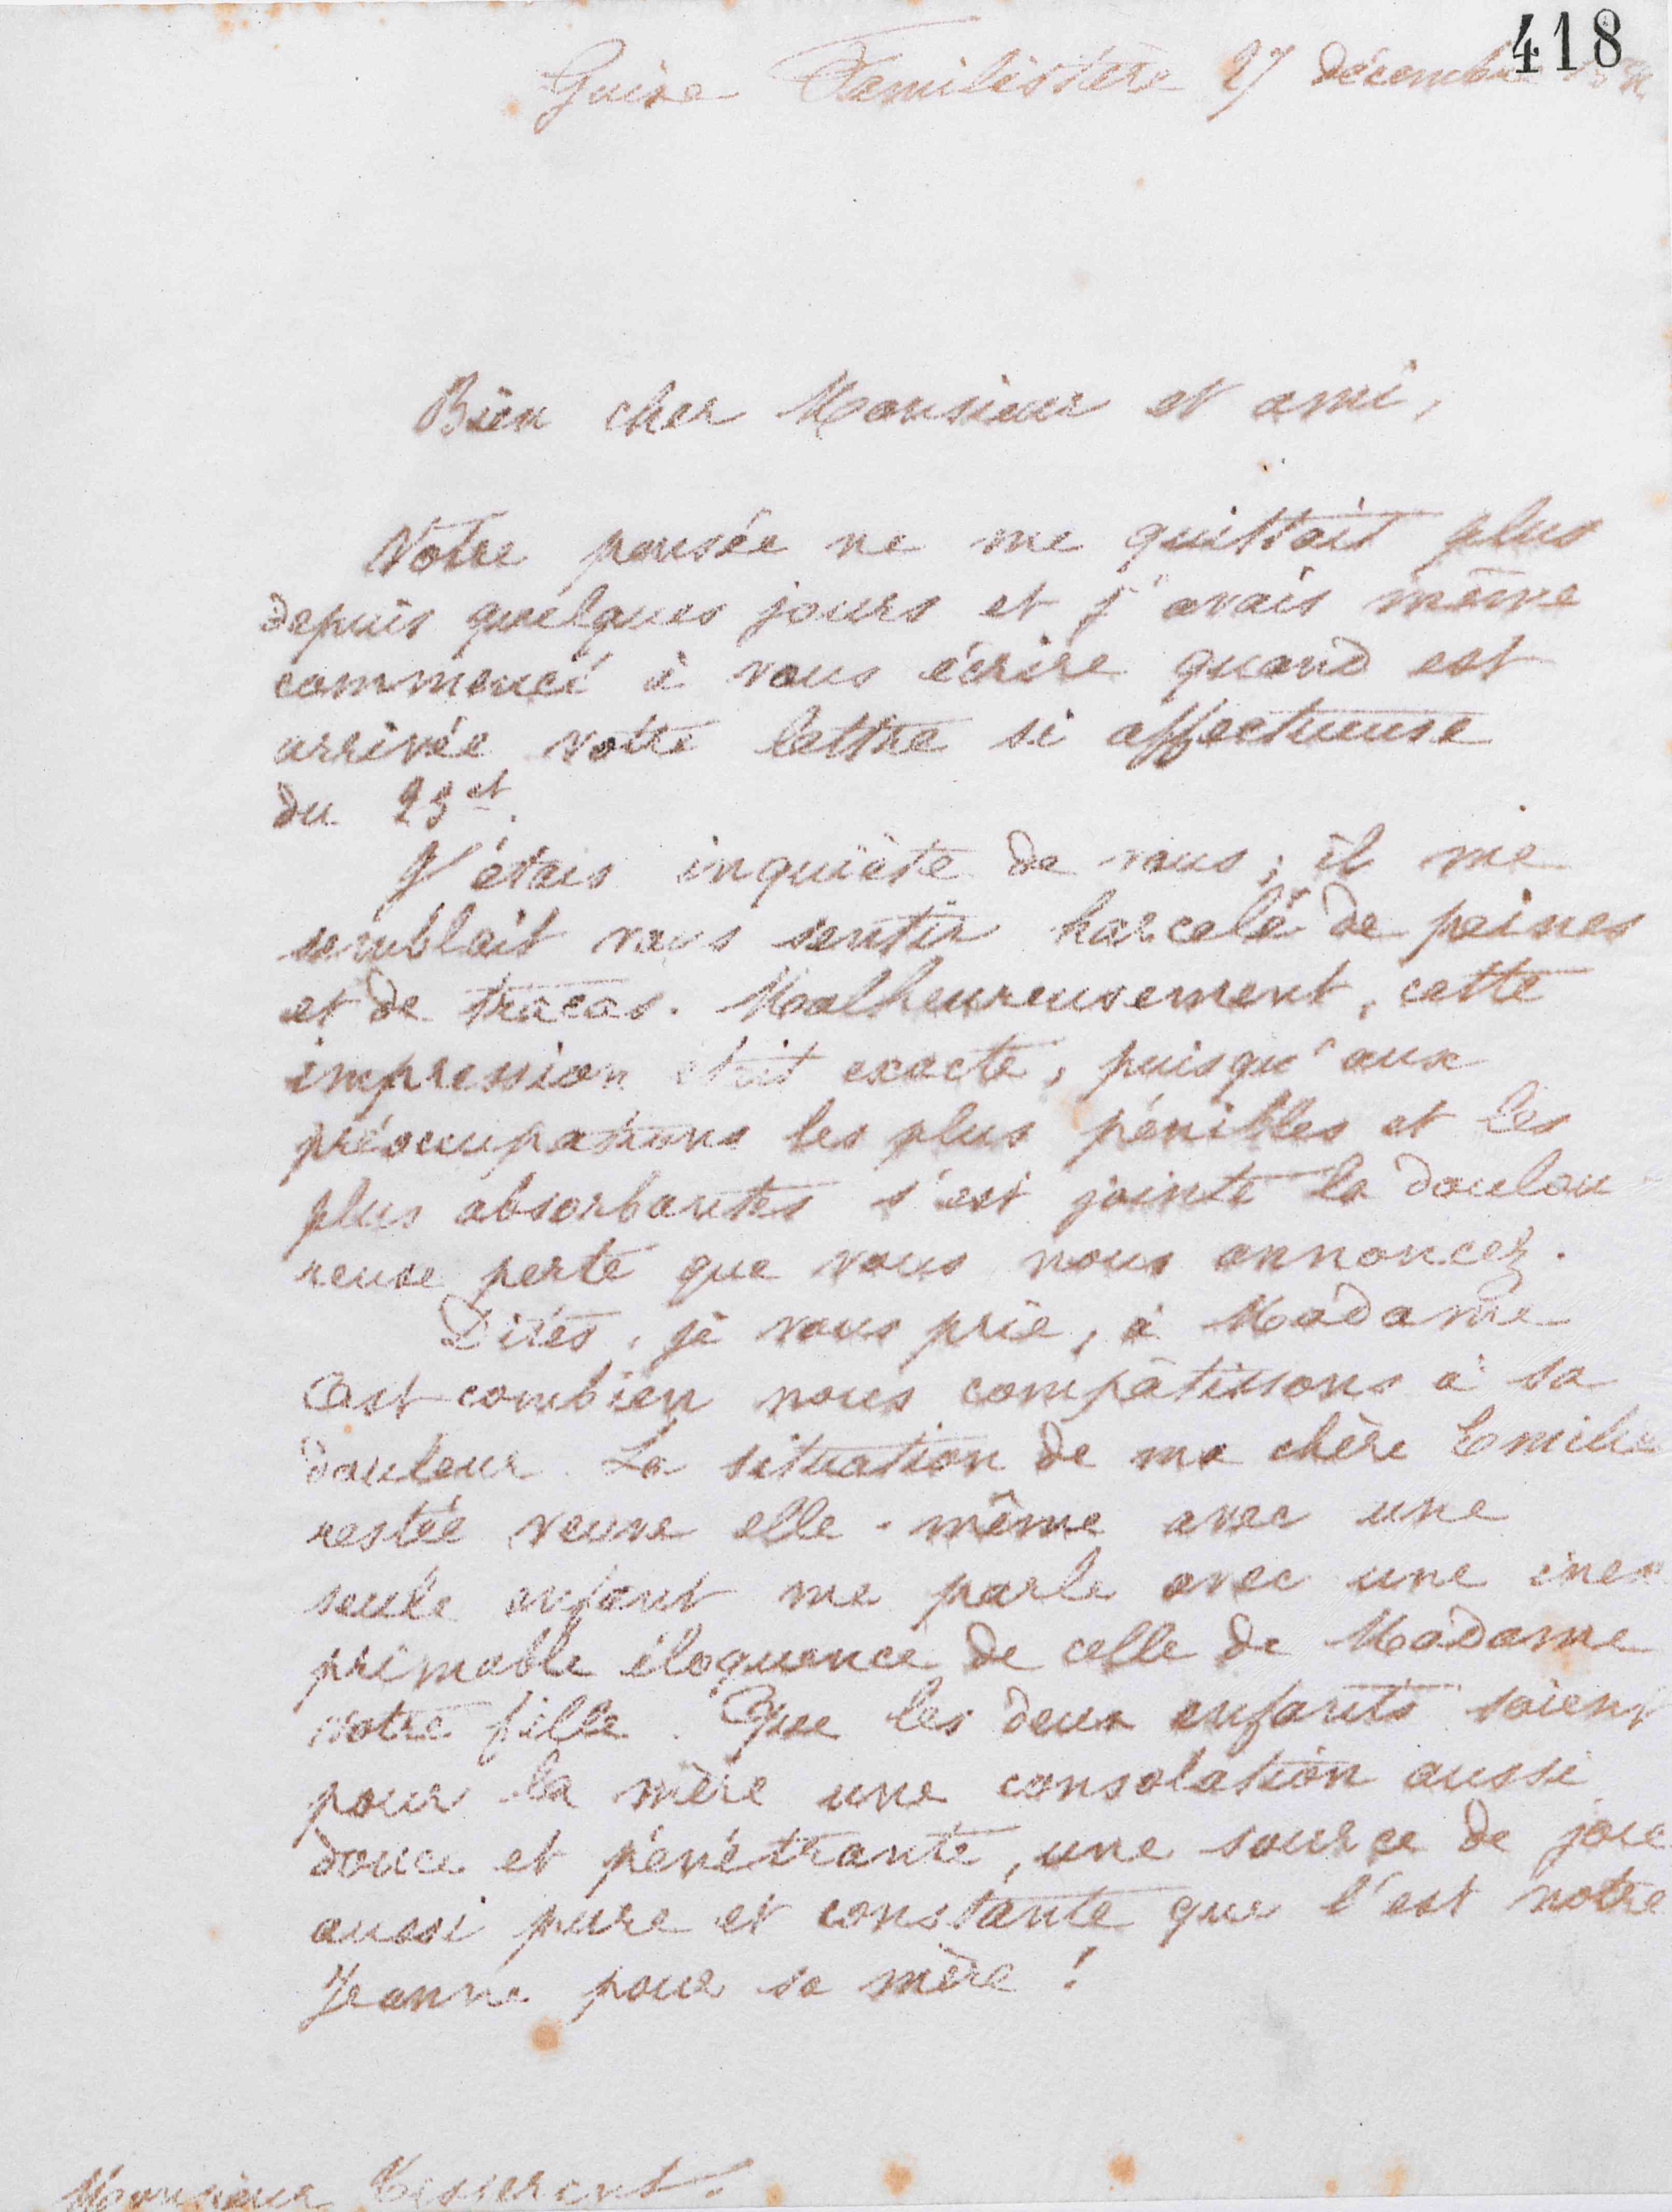 418
Guise Familistère 27 décembre
Bien cher Monsieur et ami,
Votre pensée ne me quittait plus
depuis quelques jours et j'avais même
commencé à vous écrire quand est
arrivée votre lettre si affectueuse
du 25 ct.
J'étais inquiète de vous; il me
semblait vous sentir harcelé de peines
et de tracas. Malheureusement, cette
impression était exacte, puisqu'aux
préoccupations les plus pénibles et les
plus absorbantes s'est jointe la doulou
reuse perte que vous nous annoncez.
Dites, je vous prie, à Madame
combien nous compâtissons à sa
douleur. La situation de ma chère Emilie
restée veuve elle-même avec une
seule enfant me parle avec une inex
primable éloquence de celle de Madame
votre fille. Que les deux enfants soient
pour la mère une consolation aussi
douce et pénétrante, une source de joie
aussi pure et constante que l'est notre
Jeanne pour sa mère!
Monsieur Tisserant.